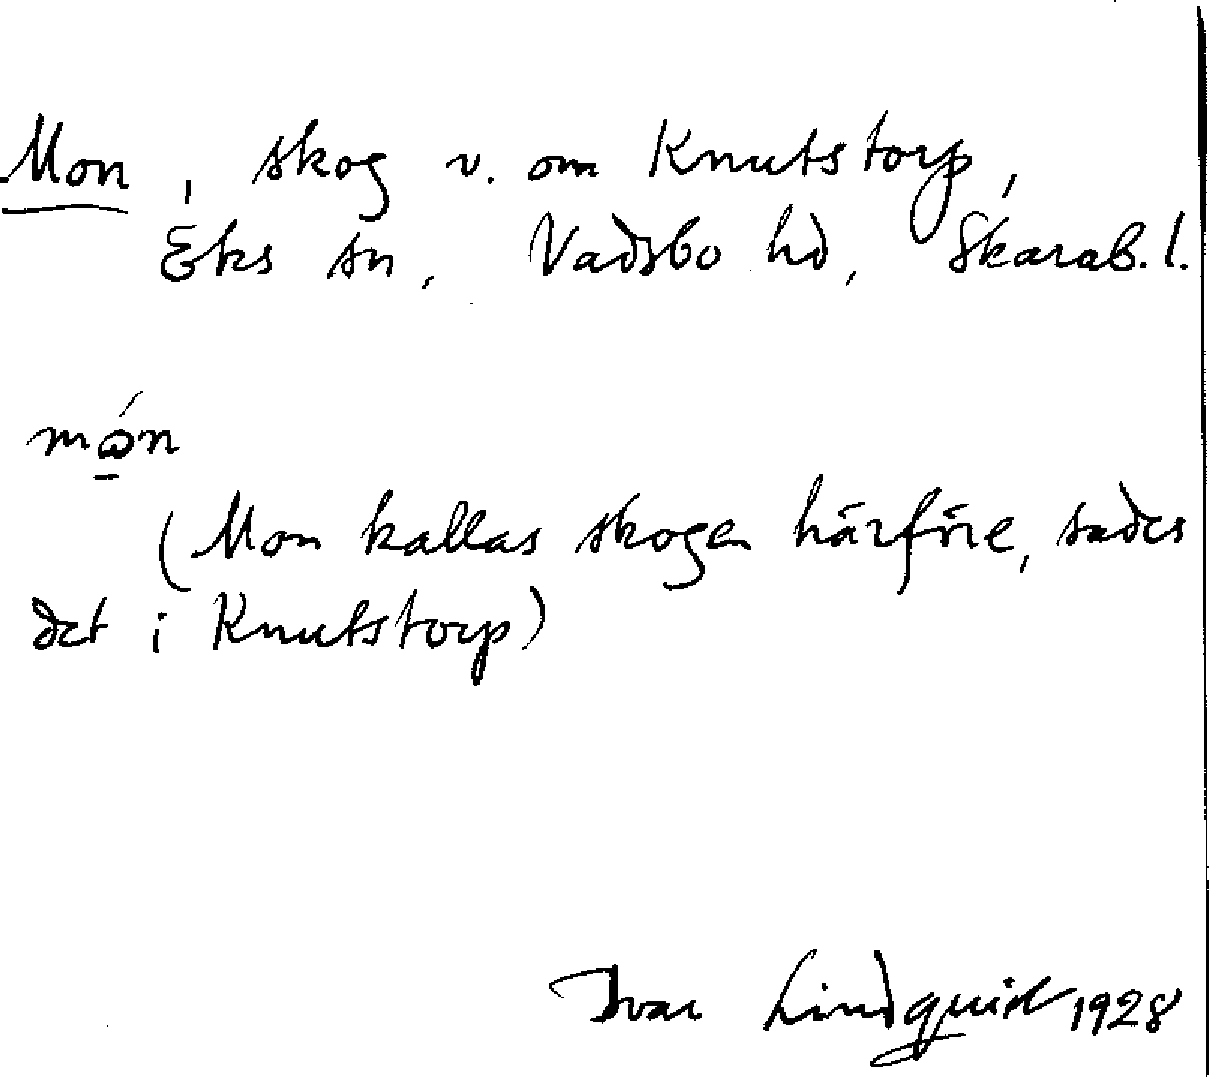 Mon, skog v. om Knutstorp,
Eks sn, Vadsbo hd, Skarab. l.
mώ̱n
(Mon kallas skogen härföre, sades
det i Knutstorp)
Ivar Lindquist 1928